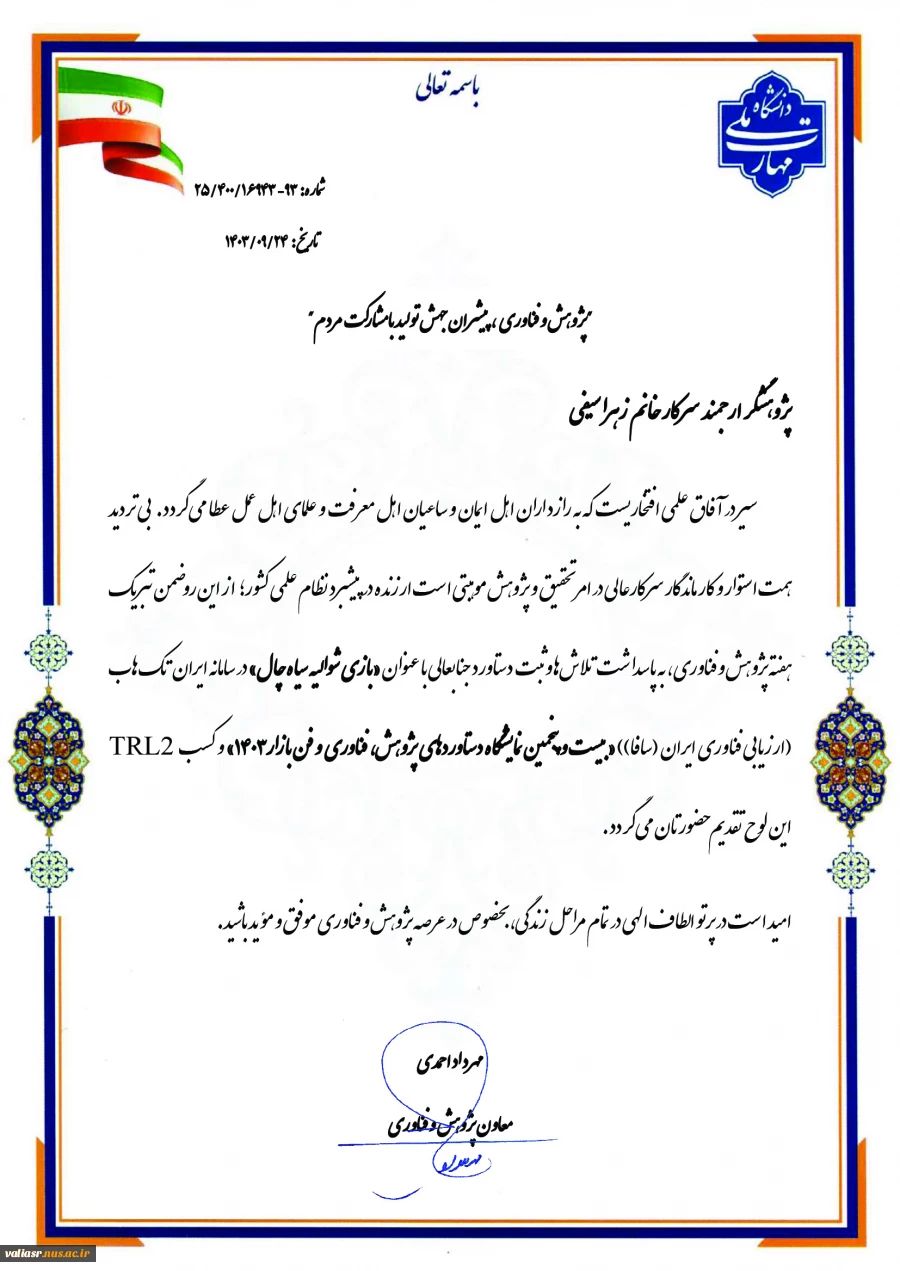 باسمه تعالی
دانشگاه
ملی
مهارت
شماره: ۹۳-۲۵/۴۰۰/۱۶۹۴۳
تاریخ: ۱۴۰۳/۰۹/۲۴
"پژوهش و فناوری، پیشران جهش تولید با مشارکت مردم"
پژوهشگر ارجمند سرکار خانم زهرا سیفی
سیر در آفاق علمی افتخاریست که به رازداران اهل ایمان و ساعیان اهل معرفت و علمای اهل عمل عطا می گردد. بی تردید
همت استوار و کار ماندگار سرکارعالی در امر تحقیق و پژوهش موهبتی است ارزنده در پیشبرد نظام علمی کشور؛ از این رو ضمن تبریک
هفته پژوهش و فناوری، به پاسداشت تلاش ها و ثبت دستاورد جنابعالی با عنوان «بازی شوالیه سیاه چال» در سامانه ایران تک هاب
(ارزیابی فناوری ایران (سافا)) «بیست و پنجمین نمایشگاه دستاوردهای پژوهش، فناوری و فن بازار ۱۴۰۳» و کسب TRL2
این لوح تقدیم حضورتان می گردد.
امید است در پرتو الطاف الهی در تمام مراحل زندگی، بخصوص در عرصه پژوهش و فناوری موفق و موید باشید.
مهرداد احمدی
معاون پژوهش و فناوری
valiasr.nus.ac.ir